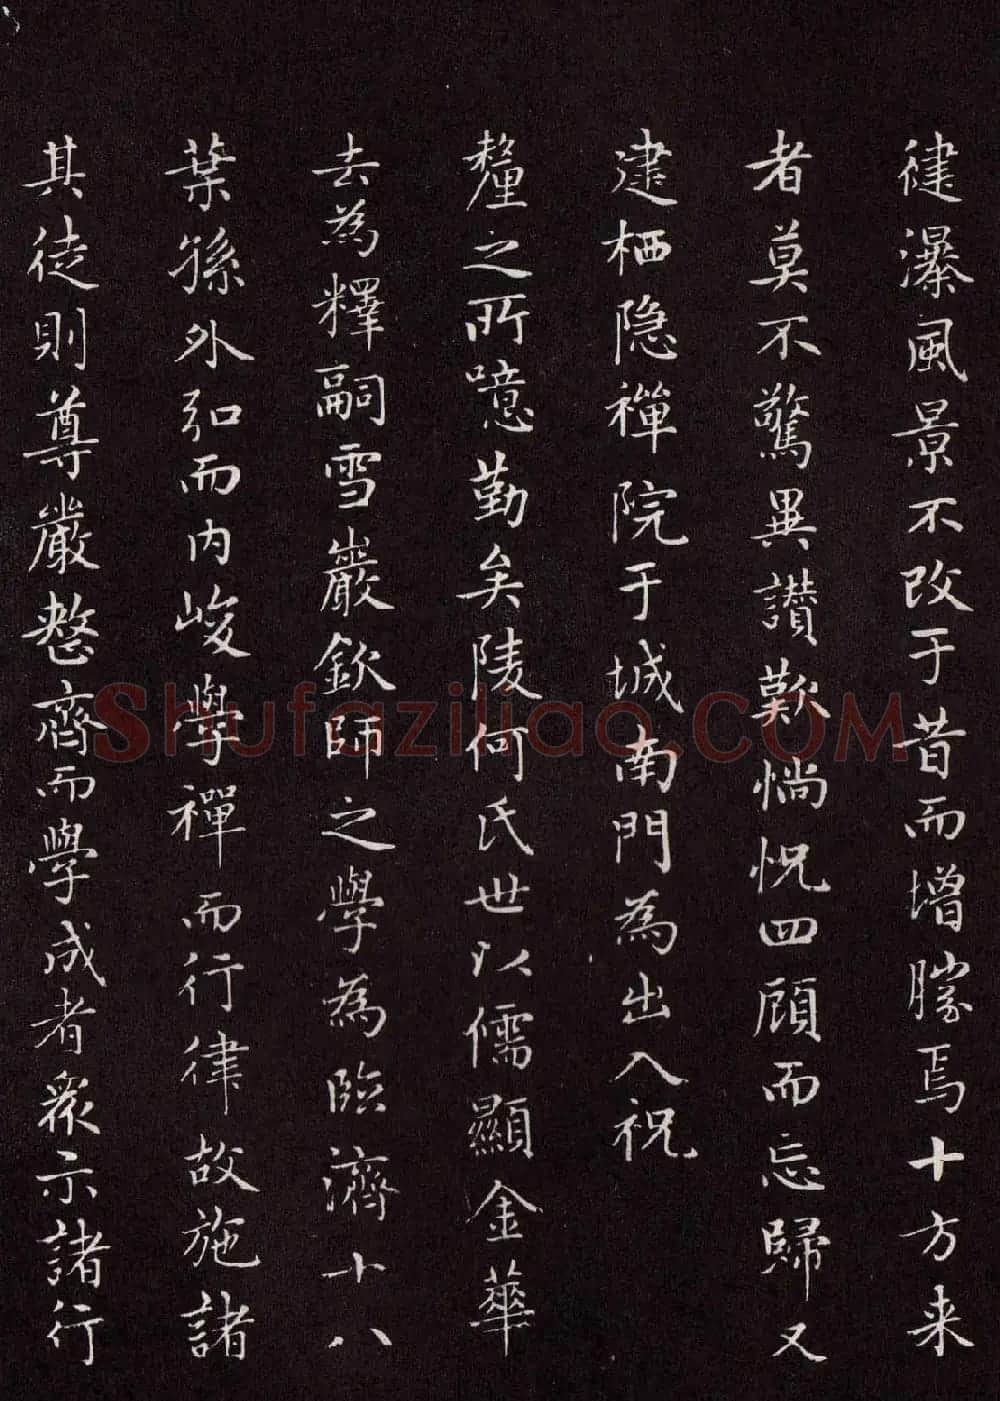 健瀑風景不改于昔而增勝焉十方来
者莫不驚異讃歎惝怳四顧而忘歸又
建栖隐禪院于城南門為出入祝
釐之所噫勤矣陵何氏世以儒顯金華
去為釋嗣雪巖欽師之學為臨濟十八
葉孫外弘而内峻學禪而行律故施諸
其徒則尊嚴整齊而學成者衆示諸行
Shufaziliao.COM